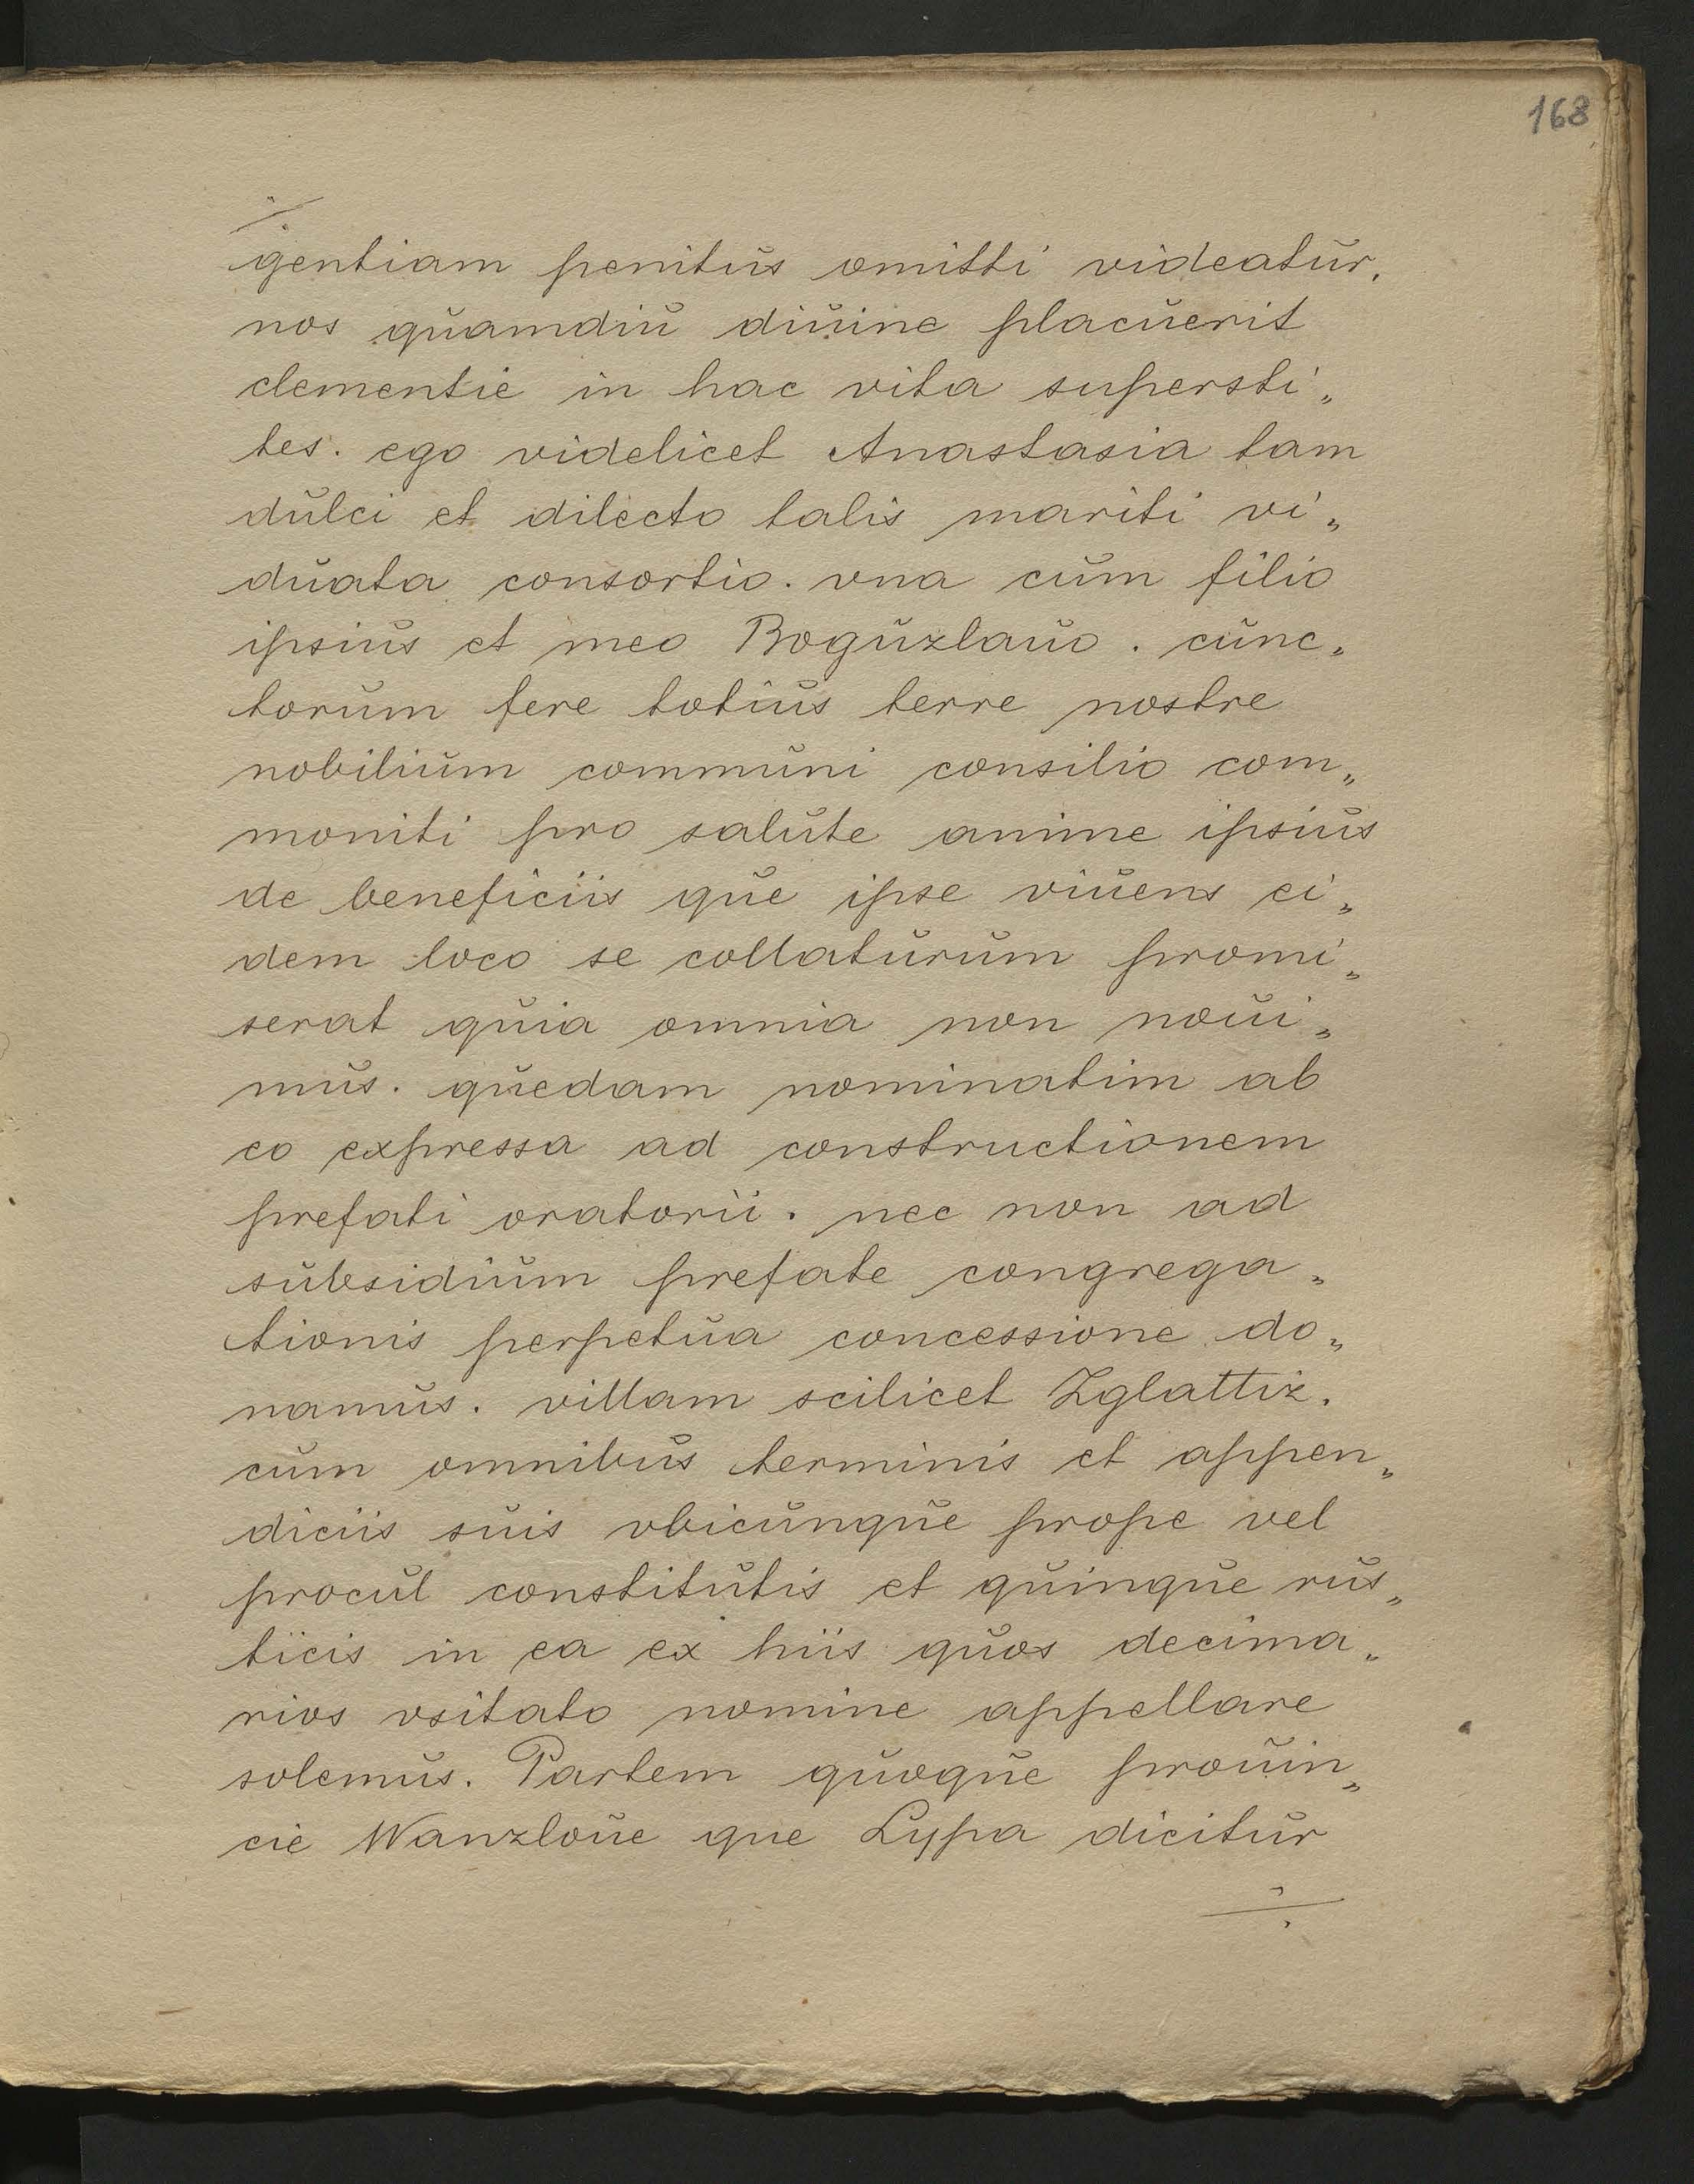 168
gentiam penitus omitti videatur.
nos quamdiu diuine placuerit
clementie in hac vita supersti„
tes. ego videlicet Anastasia tam
dulci et dilecto talis mariti vi„
duata consortio. vna cum filio
ipsius et meo Boguzlauo. cunc„
torum fere totius terre nostre
nobilium communi consilio com„
moniti pro salute anime ipsius
de beneficiis que ipse viuens ei„
dem loco se collaturum promi„
serat quia omnia non noui„
mus. quedam nominatim ab
eo expressa ad constructionem
prefati oratorii. nec non ad
subsidium prefate congrega„
tionis perpetua concessione do„
namus. villam scilicet Zglattiz.
cum omnibus terminis et appen„
diciis suis vbicunque prope vel
procul constitutis et quinque rus„
ticis in ea ex hiis quos decima„
rios vsitato nomine appellare
solemus. Partem quoque prouin„
cie Wanzloue que Lypa dicitur